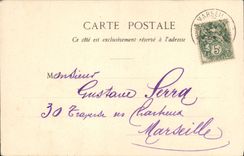 CARTE POSTALE
Ce côté est exclusivement réservé à l'adresse
MARSEILLE
5
Monsieur
Gustave Serra
30 Traverse des Chartreux
Marseille